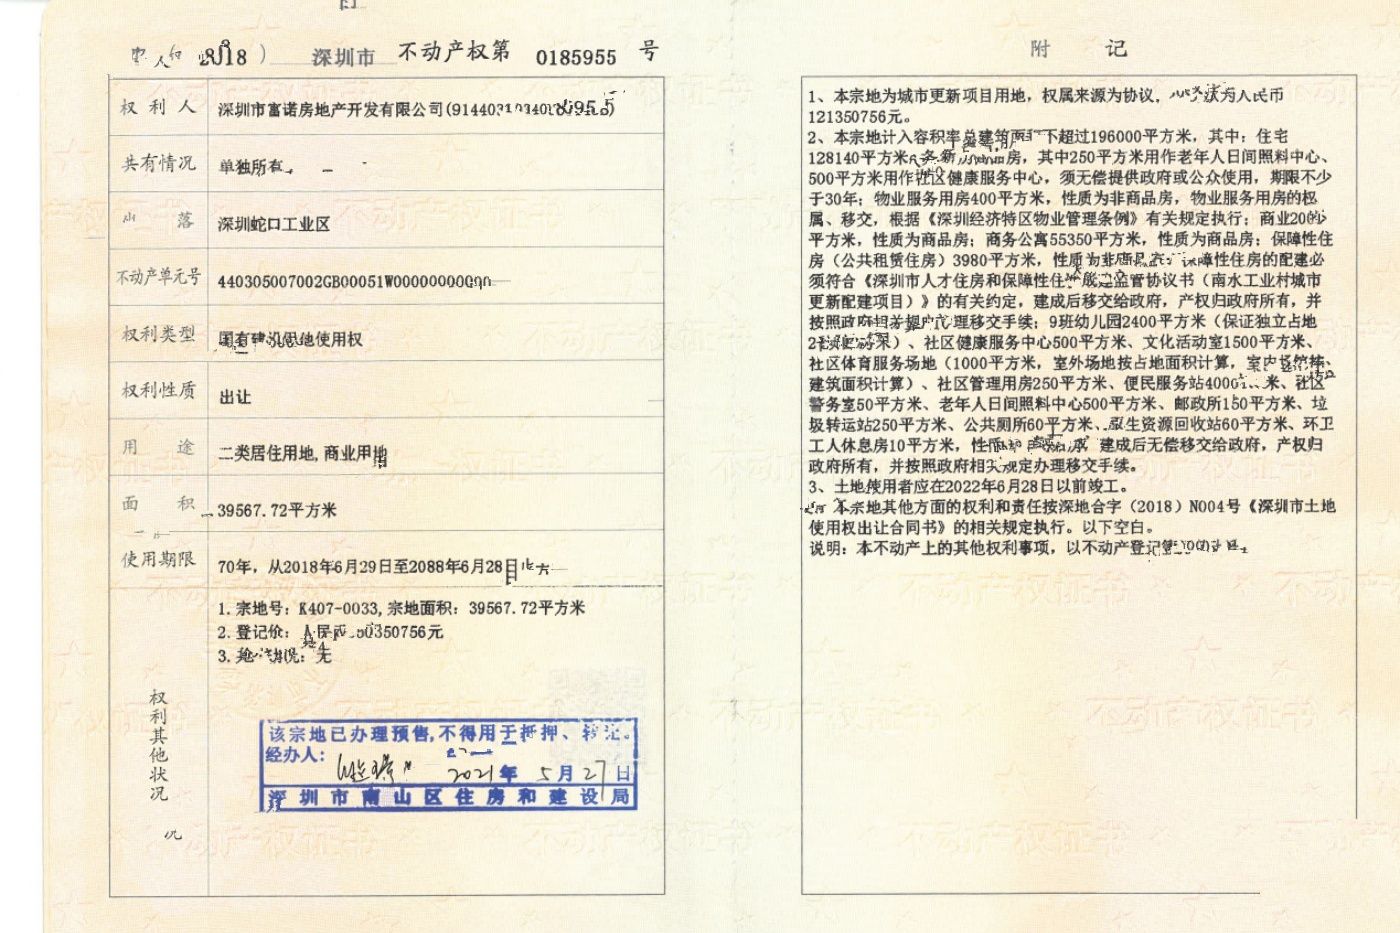 2018）深圳市 不动产权第 0185955 号
权利人 深圳市富诺房地产开发有限公司
共有情况 单独所有
落 深圳蛇口工业区
不动产单元号 440305007002GB00051W00000000
权利类型 使用权
权利性质 出让
用途 二类居住用地,商业用地
面积 39567.72平方米
使用期限 70年，从2018年6月29日至2088年6月28日
1.宗地号：K407-0033,宗地面积：39567.72平方米
2.登记价：人民 350756元
3. 情况：无
权利其他状况
该宗地已办理预售,不得用于抵押、
经办人：
2021年5月27日
深圳市南山区住房和建设局
附 记
1、本宗地为城市更新项目用地，权属来源为协议， 为人民币
121350756元。
2、本宗地计入容积率总建筑面 超过196000平方米，其中：住宅
128140平方米， 房，其中250平方米用作老年人日间照料中心、
500平方米用作社区健康服务中心，须无偿提供政府或公众使用，期限不少
于30年；物业服务用房400平方米，性质为非商品房，物业服务用房的权
属、移交，根据《深圳经济特区物业管理条例》有关规定执行；商业2000
平方米，性质为商品房；商务公寓55350平方米，性质为商品房；保障性住
房（公共租赁住房）3980平方米，性质为非 障性住房的配建必
须符合《深圳市人才住房和保障性住 监管协议书（南水工业村城市
更新配建项目）》的有关约定，建成后移交给政府，产权归政府所有，并
按照政府相关规 理移交手续；9班幼儿园2400平方米（保证独立占地
米）、社区健康服务中心500平方米、文化活动室1500平方米、
社区体育服务场地（1000平方米，室外场地按占地面积计算，室内
建筑面积计算）、社区管理用房250平方米、便民服务站400 米、社区
警务室50平方米、老年人日间照料中心500平方米、邮政所150平方米、垃
圾转运站250平方米、公共厕所60平方米、 生资源回收站60平方米、环卫
工人休息房10平方米，性质 建成后无偿移交给政府，产权归
政府所有，并按照政府相关规定办理移交手续。
3、土地使用者应在2022年6月28日以前竣工。
本宗地其他方面的权利和责任按深地合字（2018）N004号《深圳市土地
使用权出让合同书》的相关规定执行。以下空白。
说明：本不动产上的其他权利事项，以不动产登记